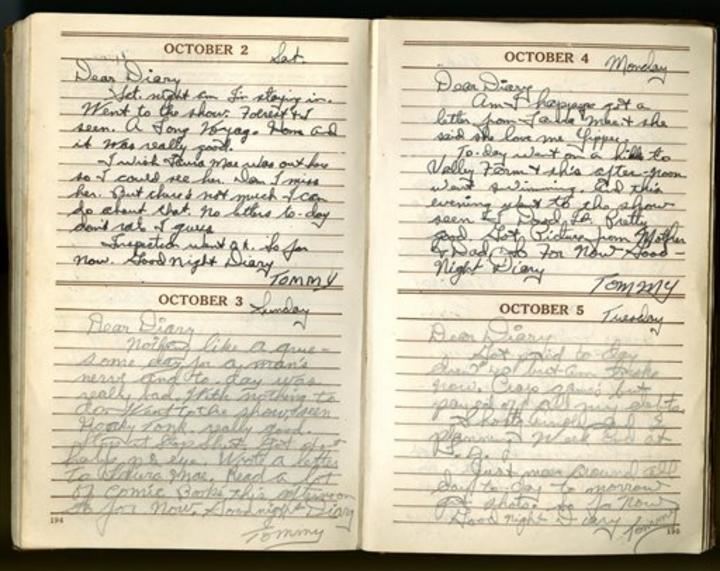 OCTOBER 2 Sat.
Dear Diary
Sat. night am I'm staying in.
Went to the show. Forrest & I
seen. A Long Voyage Home and
it was really good.
I wish Laura Mae was out here
so I could see her. Damn I miss
her. But there's not much I can
do about that. No letters to-day
don't rate I guess
Inspection went O.K. So for
now. Good night Diary
Tommy
OCTOBER 3 Sunday
Dear Diary
Nothing like a grue-
some day for a man's
nerve and to-day was
really bad. With nothing to
do. Went to the show & seen
Honky Tonk. really good.
Slap Shot. Got
no eye. Wrote a letter
to Laura Mae. Read a lot
of Comic Books this afternoon
so for now. Goodnight Diary
Tommy
194
OCTOBER 4 Monday
Dear Diary
Am I happy got a
letter from Laura Mae & she
said she love me Yippee.
To-day went on a hike to
Valley Farm & this after-noon
went swimming. And this
evening went to the show
seen I Dood It. Pretty
good. Got Picture from Mother
& Dad. So For Now Good-
Night Diary
Tommy
OCTOBER 5 Tuesday
Dear Diary
Got paid to-day
but am broke
now. Crap game & but
payed off all my debts.
I
planning Week End at
Just mess around all
day to-day to morrow
shots. So for Now
Good Night Diary Tommy
195